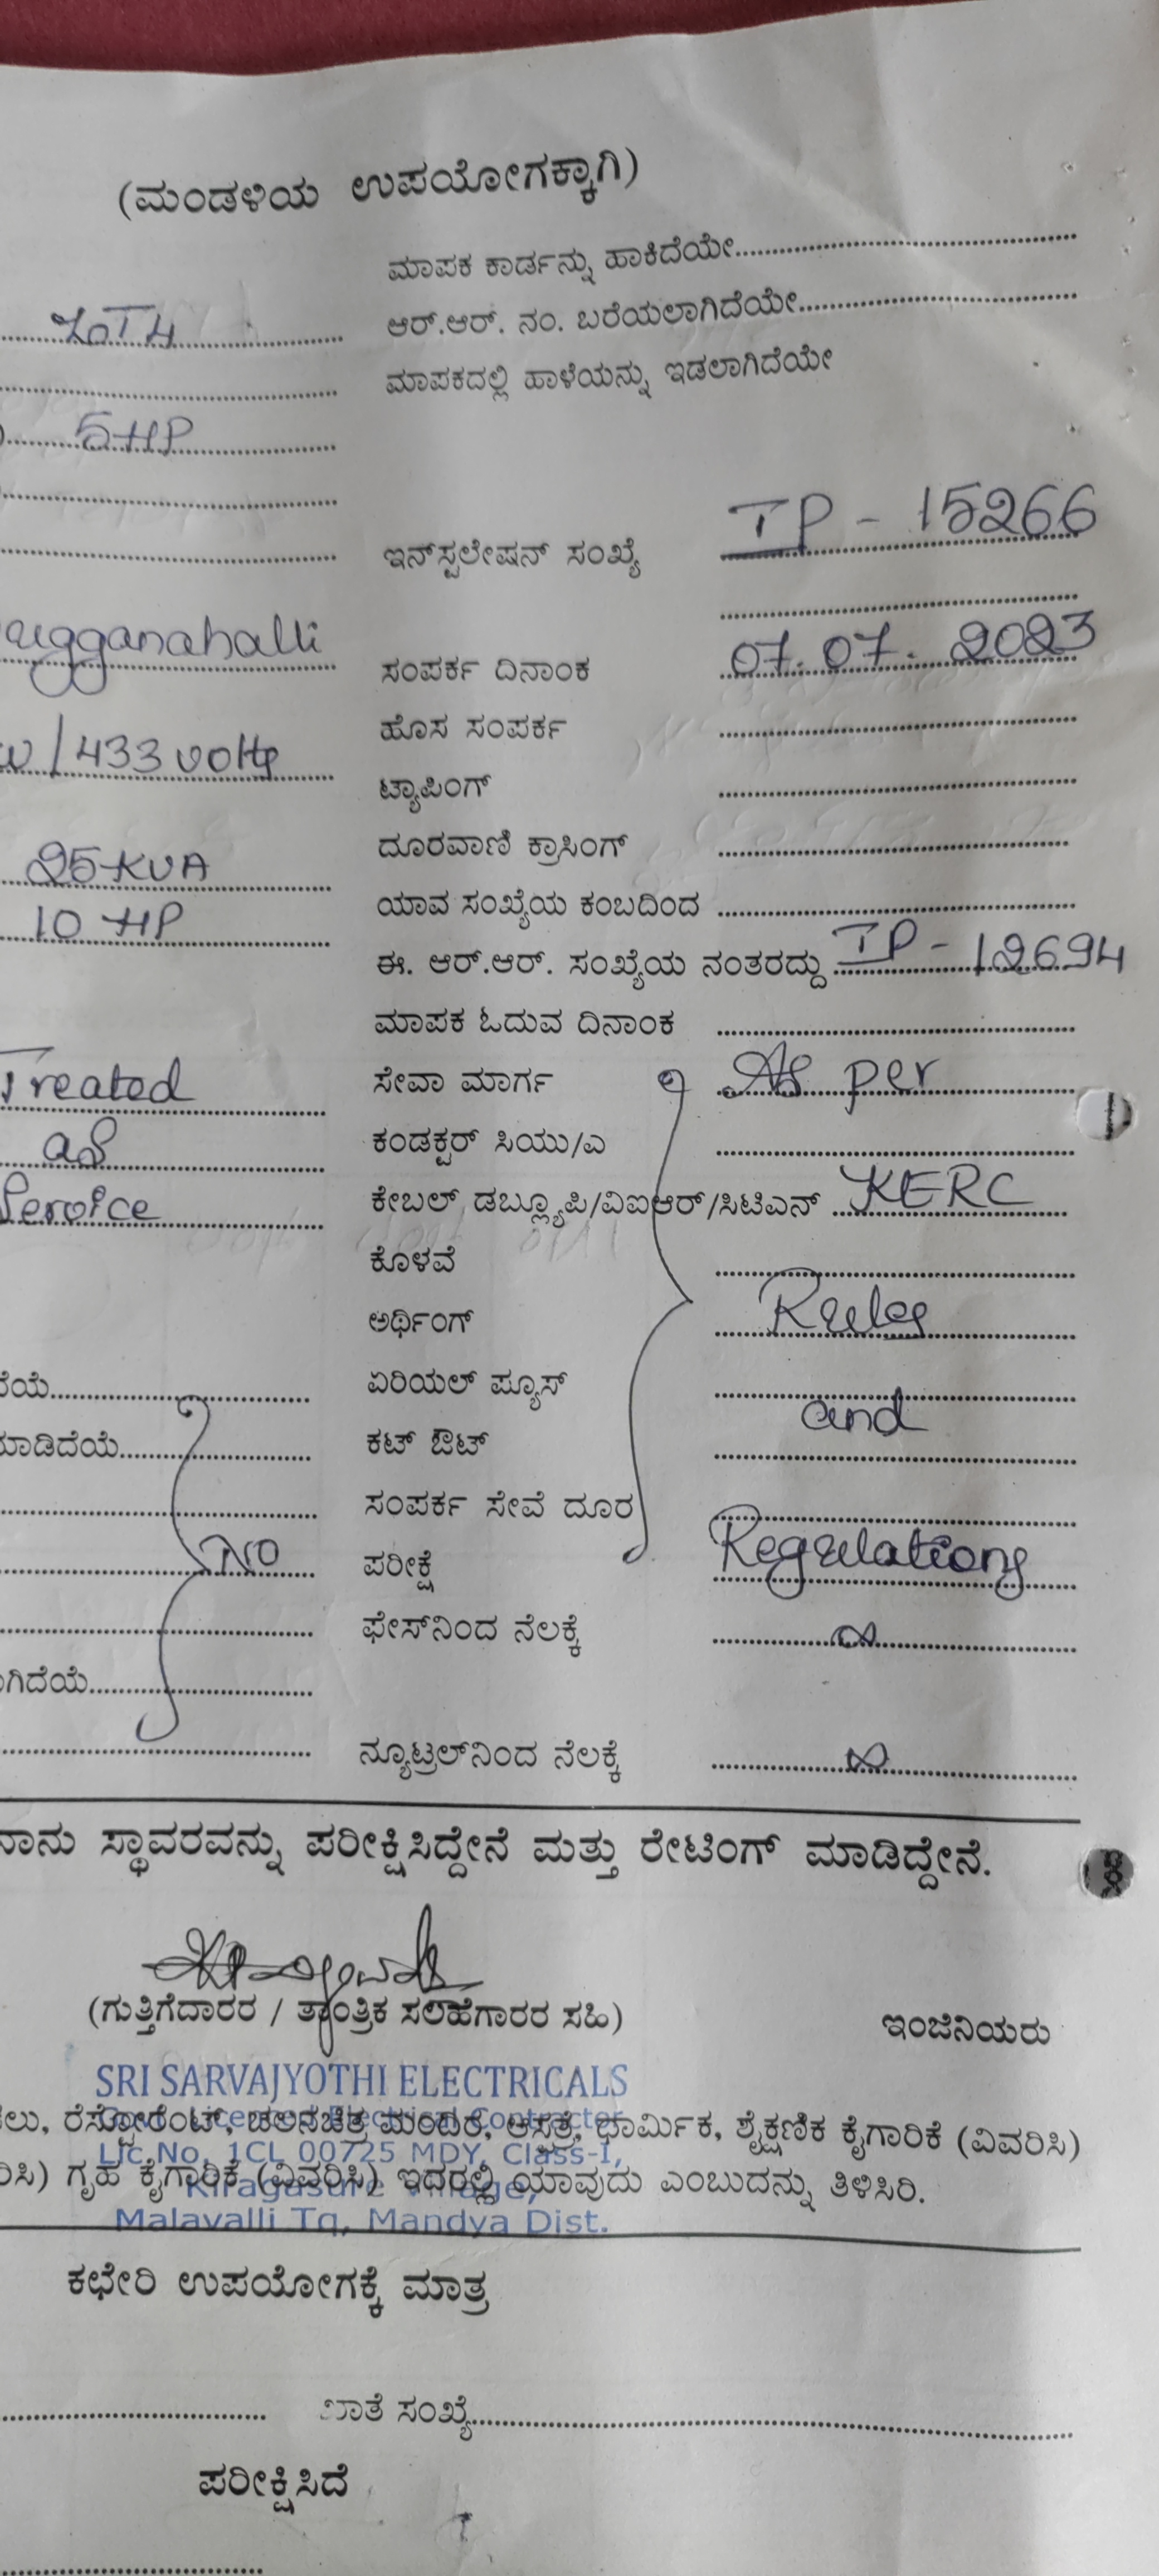 (ಮಂಡಳಿಯ ಉಪಯೋಗಕ್ಕಾಗಿ)
ಮಾಪಕ ಕಾರ್ಡನ್ನು ಹಾಕಿದೆಯೇ
ಆರ್.ಆರ್. ನಂ. ಬರೆಯಲಾಗಿದೆಯೇ
ಮಾಪಕದಲ್ಲಿ ಹಾಳೆಯನ್ನು ಇಡಲಾಗಿದೆಯೇ
5HP
ಇನ್‌ಸ್ಟಲೇಷನ್ ಸಂಖ್ಯೆ IP - 15266
ugganahalli
ಸಂಪರ್ಕ ದಿನಾಂಕ 07.07.2023
ಹೊಸ ಸಂಪರ್ಕ
/433 volts
ಟ್ಯಾಪಿಂಗ್
ದೂರವಾಣಿ ಕ್ರಾಸಿಂಗ್
25 KVA
ಯಾವ ಸಂಖ್ಯೆಯ ಕಂಬದಿಂದ
10 HP
ಈ. ಆರ್.ಆರ್. ಸಂಖ್ಯೆಯ ನಂತರದ್ದು IP - 12694
ಮಾಪಕ ಓದುವ ದಿನಾಂಕ
Treated ಸೇವಾ ಮಾರ್ಗ As per
as ಕಂಡಕ್ಟರ್ ಸಿಯು/ಎ
Service ಕೇಬಲ್ ಡಬ್ಲ್ಯೂಪಿ/ವಿಐಆರ್/ಸಿಟಿಎನ್ KERC
ಕೊಳವೆ
ಅರ್ಥಿಂಗ್ Rules
ದೆಯೆ ಏರಿಯಲ್ ಪ್ಯೂಸ್
and
ಮಾಡಿದೆಯೆ ಕಟ್ ಔಟ್
ಸಂಪರ್ಕ ಸೇವೆ ದೂರ
NO ಪರೀಕ್ಷೆ Regulations
ಫೇಸ್‌ನಿಂದ ನೆಲಕ್ಕೆ ∞
ಗಿದೆಯೆ
ನ್ಯೂಟ್ರಲ್‌ನಿಂದ ನೆಲಕ್ಕೆ ∞
ನಾನು ಸ್ಥಾವರವನ್ನು ಪರೀಕ್ಷಿಸಿದ್ದೇನೆ ಮತ್ತು ರೇಟಿಂಗ್ ಮಾಡಿದ್ದೇನೆ.
(ಗುತ್ತಿಗೆದಾರರ / ತಾಂತ್ರಿಕ ಸಲಹೆಗಾರರ ಸಹಿ) ಇಂಜಿನಿಯರು
SRI SARVAJYOTHI ELECTRICALS
Govt. Licenced Electrical Contractor
ಲು, ರೆಸ್ಟೋರೆಂಟ್, ಚಲನಚಿತ್ರ ಮಂದಿರ, ಆಸ್ಪತ್ರೆ, ಧಾರ್ಮಿಕ, ಶೈಕ್ಷಣಿಕ ಕೈಗಾರಿಕೆ (ವಿವರಿಸಿ)
Lic.No. 1CL 00725 MDY, Class-I,
ರಿಸಿ) ಗೃಹ ಕೈಗಾರಿಕೆ (ವಿವರಿಸಿ) ಇದರಲ್ಲಿ ಯಾವುದು ಎಂಬುದನ್ನು ತಿಳಿಸಿರಿ.
Kiragasure Village,
Malavalli Tq, Mandya Dist.
ಕಛೇರಿ ಉಪಯೋಗಕ್ಕೆ ಮಾತ್ರ
ಖಾತೆ ಸಂಖ್ಯೆ
ಪರೀಕ್ಷಿಸಿದೆ